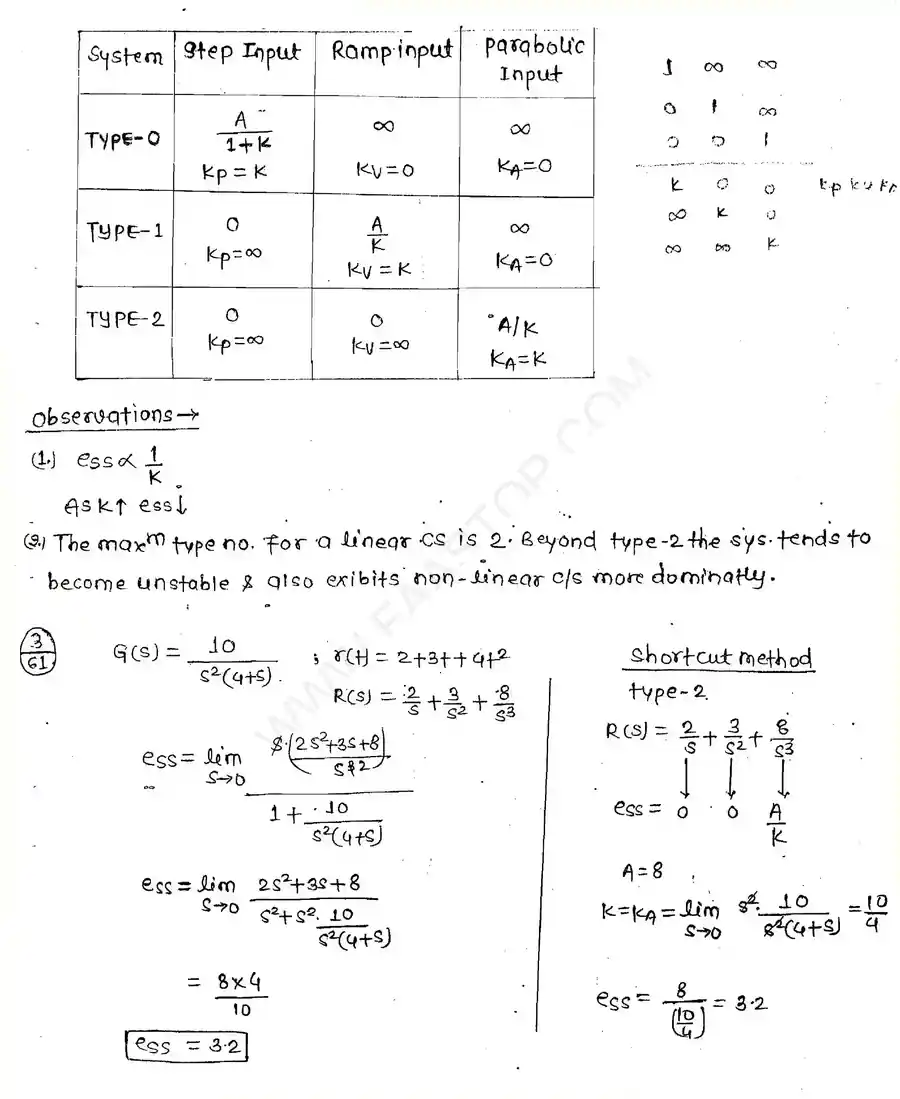 System | Step Input | Ramp input | Parabolic Input
TYPE-0 | A/(1+K) Kp = K | ∞ Kv=0 | ∞ KA=0
TYPE-1 | 0 Kp=∞ | A/K Kv = K | ∞ KA=0
TYPE-2 | 0 Kp=∞ | 0 Kv=∞ | A/K KA=K
1 ∞ ∞
0 1 ∞
0 0 1
K 0 0 Kp Kv KA
∞ K 0
∞ ∞ K
Observations →
(1.) ess ∝ 1/K
As K↑ ess↓
(2.) The maxᵐ type no. for a linear CS is 2. Beyond type-2 the sys. tends to
become unstable & also exibits non-linear c/s more dominatly.
3/61 G(s) = 10/(s²(4+s)) ; r(t) = 2+3t+4t²
R(s) = 2/s + 3/s² + 8/s³
ess = lim s→0 [s·(2s²+3s+8)/s³]/[1 + 10/(s²(4+s))]
ess = lim s→0 (2s²+3s+8)/(s²+s²·10/(s²(4+s)))
= (8×4)/10
ess = 3.2
Shortcut method
type-2
R(s) = 2/s + 3/s² + 8/s³
↓ ↓ ↓
ess = 0 0 A/K
A=8
K=KA= lim s→0 s²·10/(s²(4+s)) = 10/4
ess = 8/(10/4) = 3.2